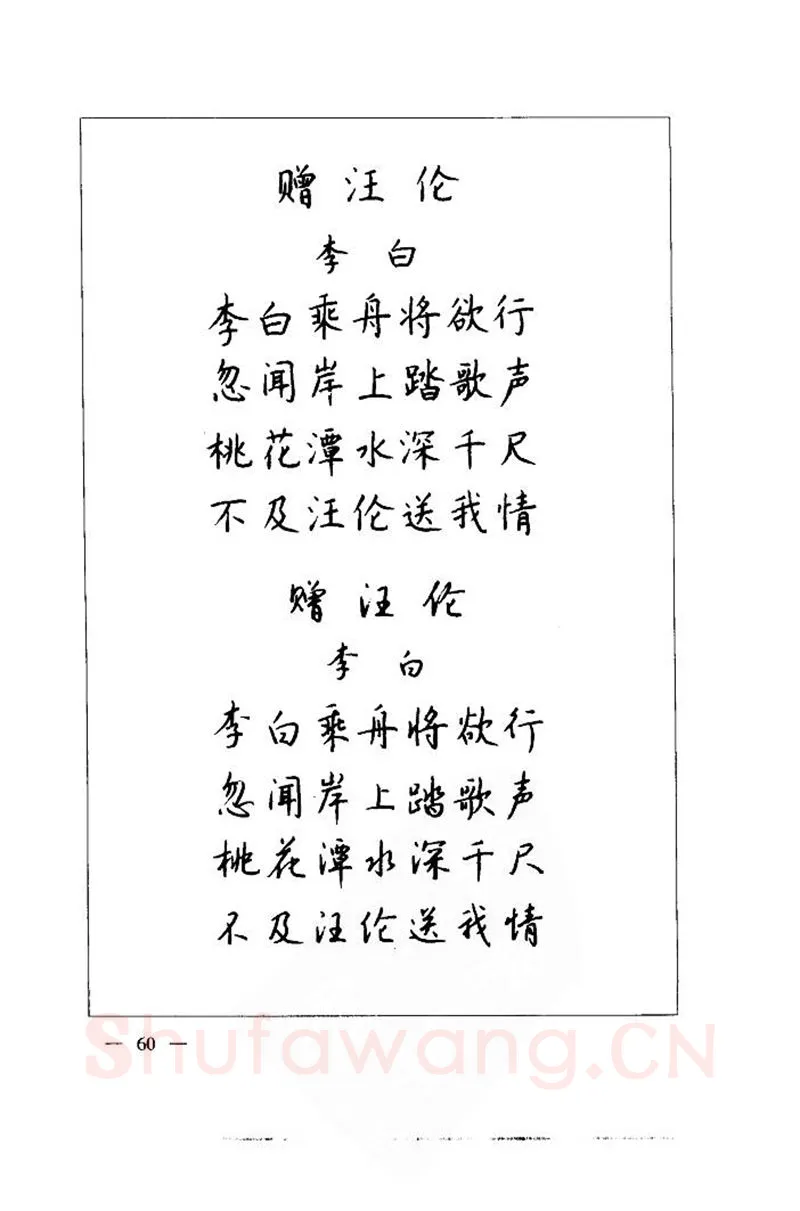 赠汪伦
李白
李白乘舟将欲行
忽闻岸上踏歌声
桃花潭水深千尺
不及汪伦送我情
赠汪伦
李白
李白乘舟将欲行
忽闻岸上踏歌声
桃花潭水深千尺
不及汪伦送我情
— 60 —
Shufawang.CN